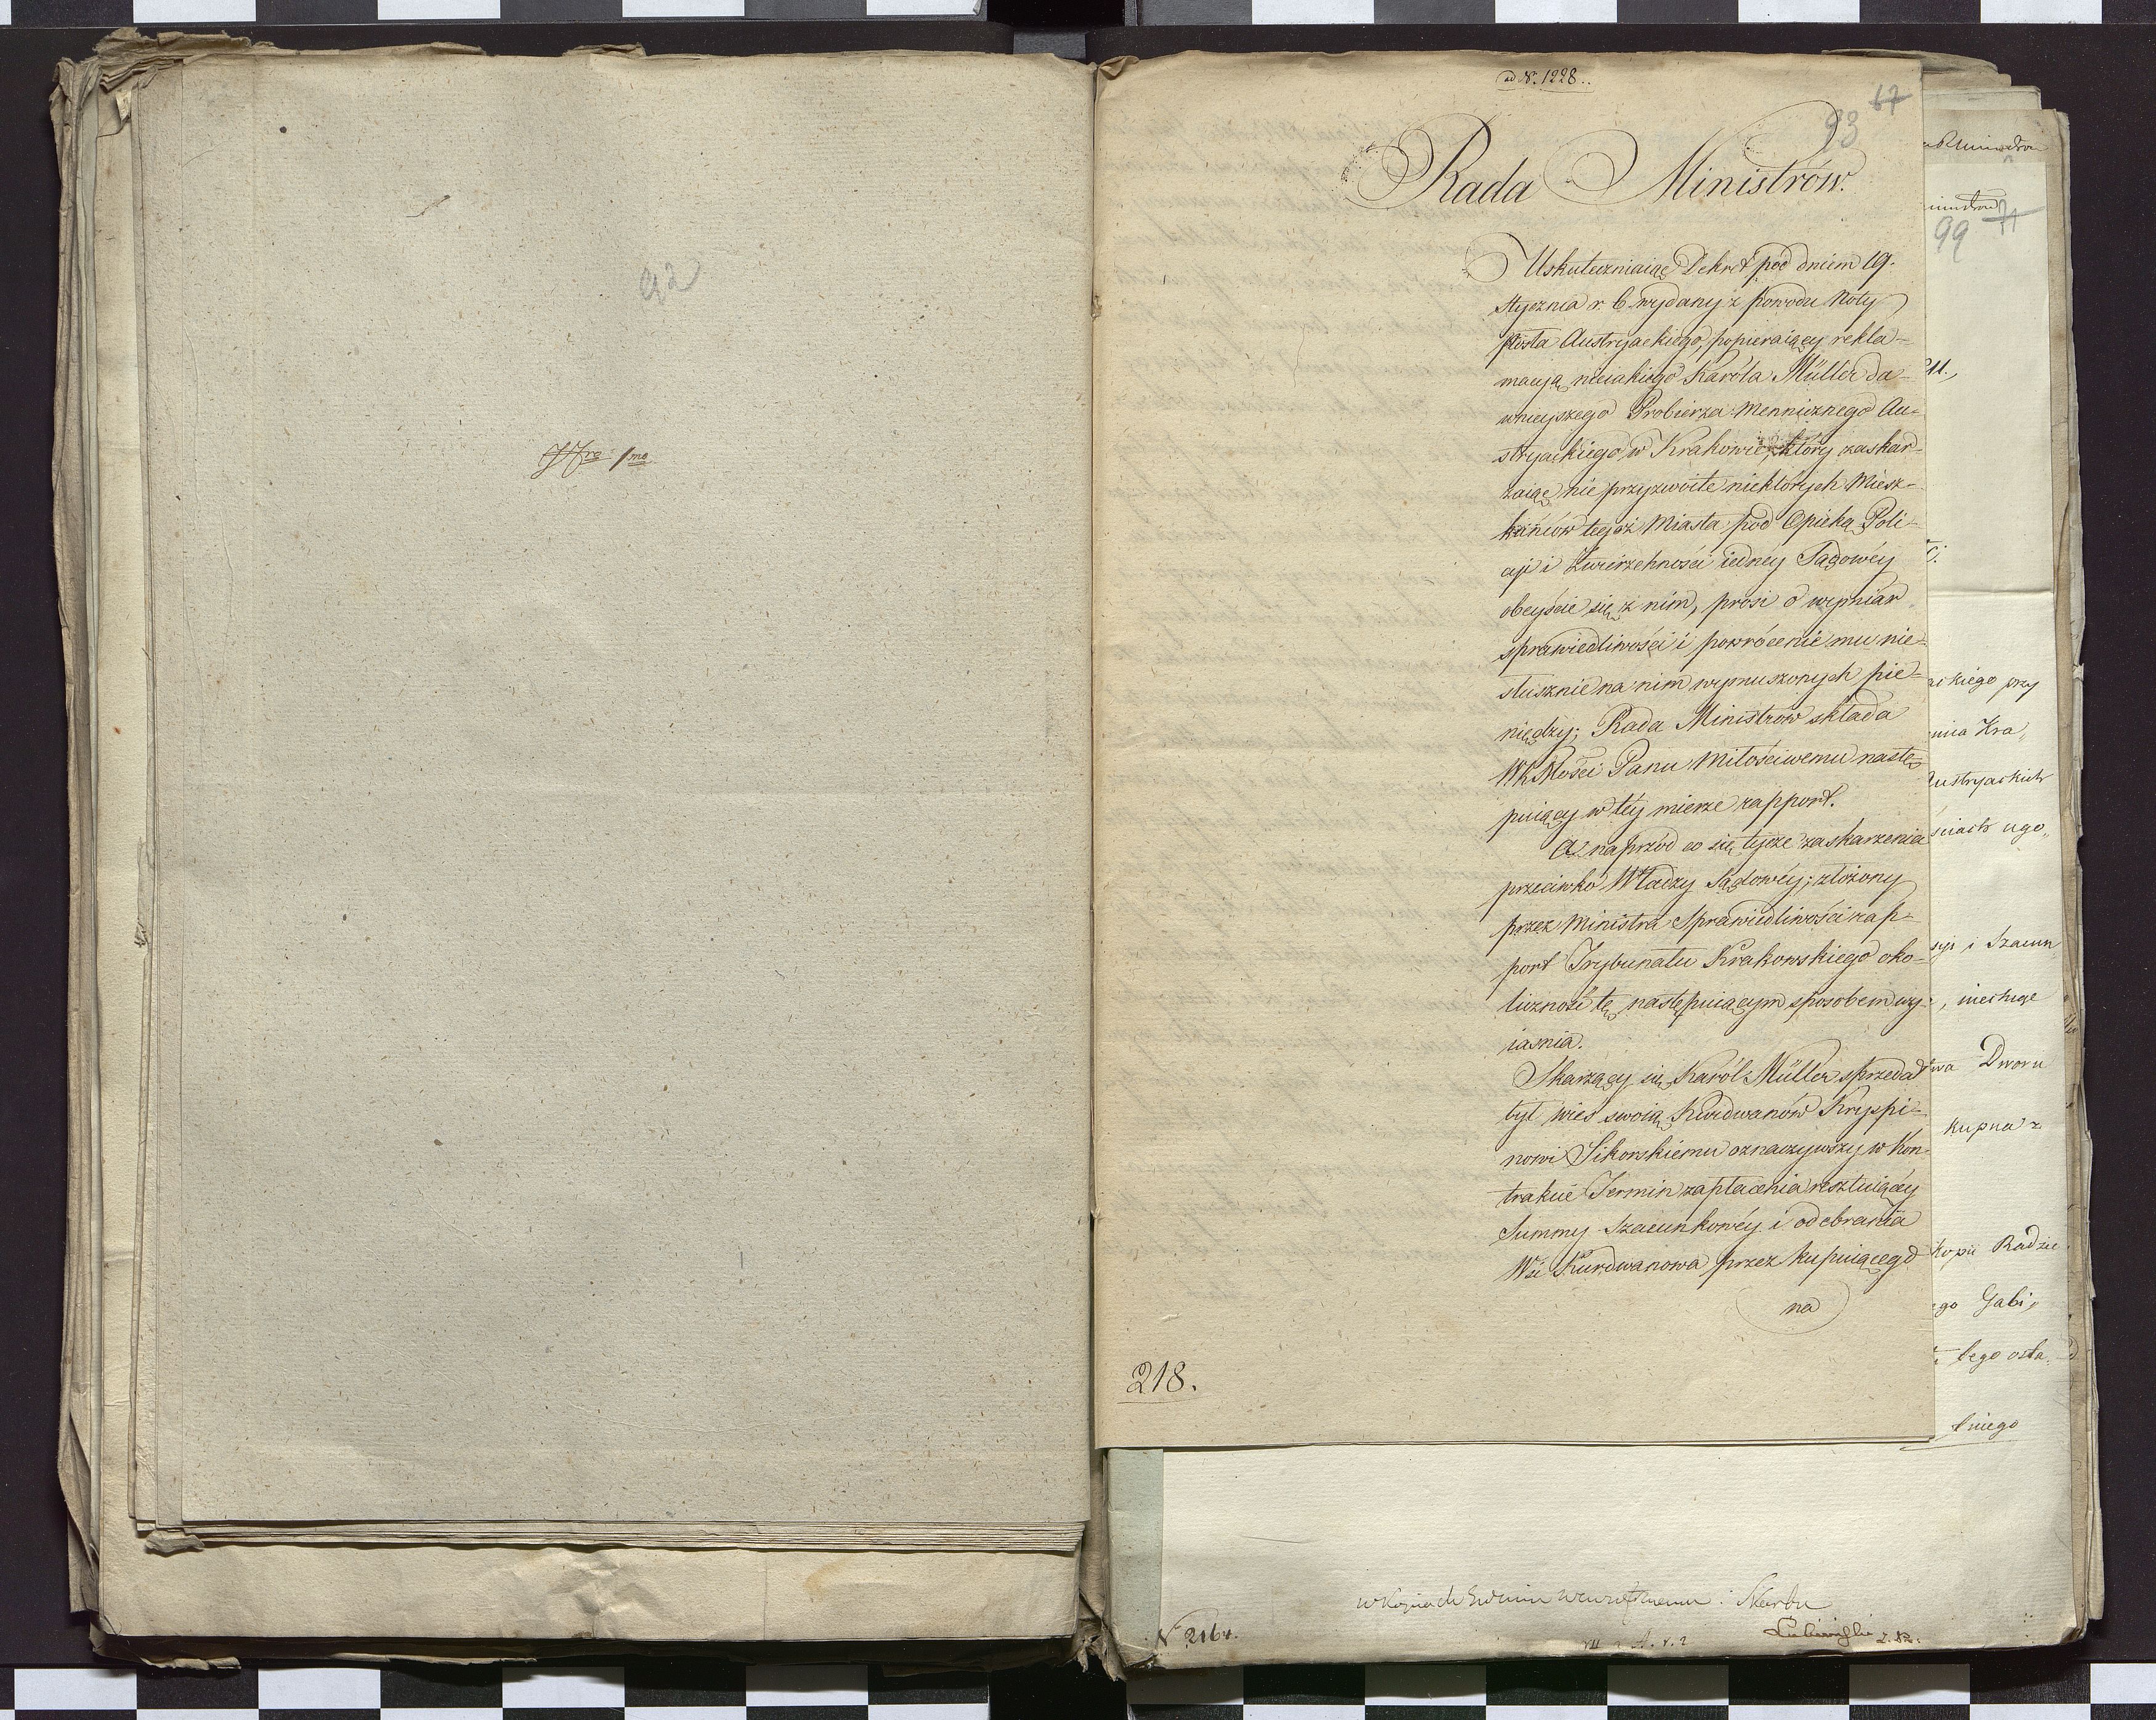 92
ad N. 1228.
67
93
Rada Ministrów.
Uskuteczniaiąc Dekret pod dniem 19.
Stycznia r. b. wydany z powodu Noty
Posła Austryackiego, popieraiącey rekla-
macyą nieiakiego Karola Müller da-
wnieyszego Probierza Mennicznego Au-
stryackiego w Krakowie, który zaskar-
żaiąc nie przyzwoite niektórych Miesz-
kańców tegoż Miasta pod Opieką Poli-
cyi i Zwierzchności iedney Sądowéy
obeyście się z nim, prosi o wymiar
sprawiedliwości i powrócenie mu nie-
słusznie na nim wymuszonych pie-
niędzy; Rada Ministrów składa
WKMości Panu Miłościwemu nastę-
puiący w téy mierze rapport.
A naprzód co się tycze zaskarzenia
przeciwko Władzy Sądowéy; złożony
przez Ministra Sprawiedliwości rap-
port Trybunału Krakowskiego oko-
liczność tę następuiącym sposobem wy-
iasnia.
Skarzący się Karól Müller sprzedał
był wieś swoią Kurdwanów Kryspi-
nowi Sikorskiemu oznaczywszy w kon-
trakcie Termin zapłacenia resztuiącéy
Summy Szacunkowéy i odebrania
Wsi Kurdwanowa przez kupuiącego
na
218.
99 71
ackiego przy
mia Kra„
Austryackich
ściach ugo„
syi i Szacun
Dworu
kupna z
Kopii Radzie
ego Gabi„
tego osta„
tniego
Skarbu
N 216